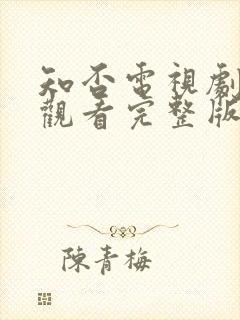 知否電視劇
觀看完整版
陳青梅